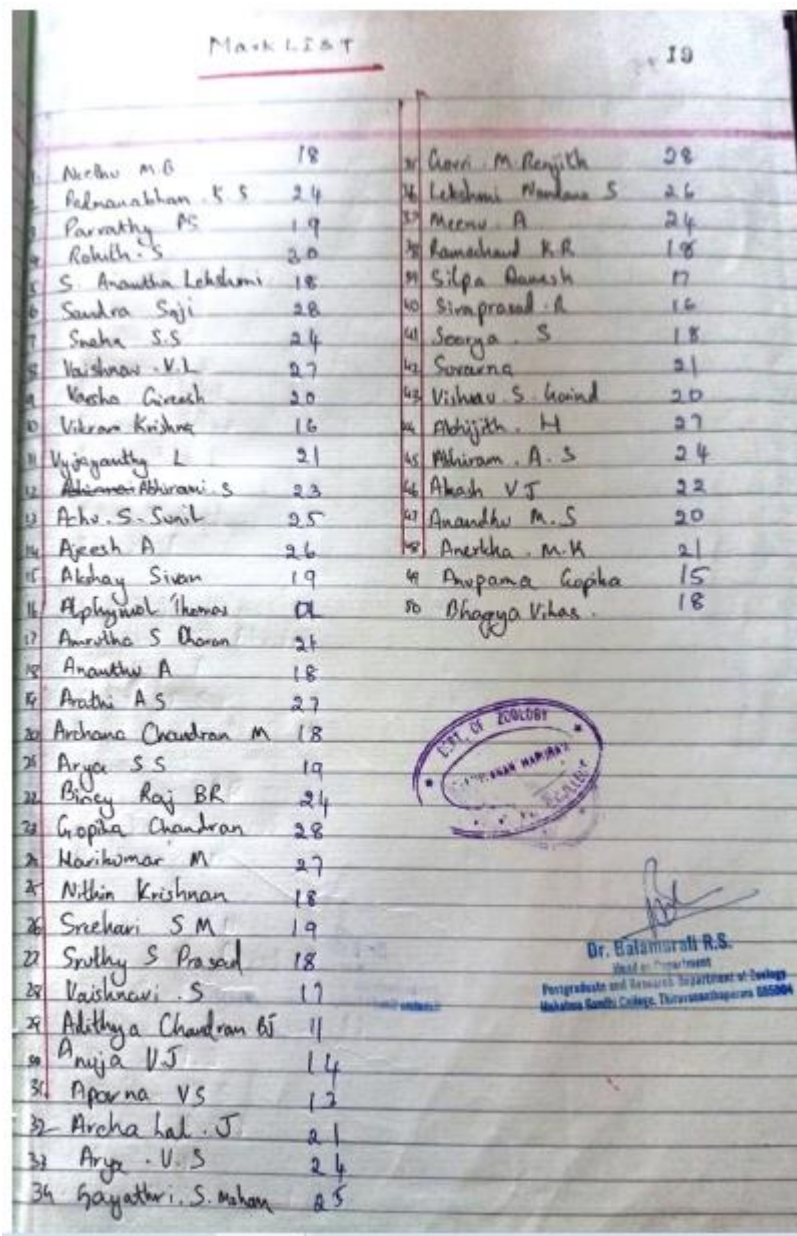 Mark LIST
19
1. Neethu M.G 18
2 Padmanabhan. K S 24
3 Parvathy PS 19
4 Rohith. S 20
5 S. Anantha Lekshmi 18
6 Sandra Saji 28
7 Sneha S.S 24
8 Vaishnav. V.L 27
9 Varsha Gireesh 20
10 Vikram Krishna 16
11 Vyjayanthy L 21
12 Abhirami. S 23
13 Achu. S. Sunil 25
14 Ajeesh A 26
15 Akshay Sivan 19
16 Alphymol Thomas
17 Amrutha S Dharan
18 Ananthu A 18
19 Arathi A S 27
20 Archana Chandran M 18
21 Arya S S 19
22 Biney Raj BR 24
23 Gopika Chandran 28
24 Harikumar M 27
25 Nithin Krishnan 18
26 Sreehari S M 19
27 Sruthy S Prasad 18
28 Vaishnavi. S 17
29 Adithya Chandran BJ 11
30 Anuja V J 14
31. Aparna VS
32 Archa Lal. J 21
33 Arya. V. S 24
34 Gayathri. S. Mohan 25
35 Gowri. M. Renjith 28
36 Lekshmi Nandana S 26
37 Meenu. A 24
38 Ramachand K.R 18
39 Silpa 17
40 Sivaprasad. R 16
41 Soorya. S 18
42 Suvarna 21
43 Vishnav. S. Govind 20
44 Abhijith. H 27
45 Abhiram. A. S 24
46 Akash V J 22
47 Anandhu M. S 20
48 Anerkha. M. K 21
49 Anupama Gopika 15
50 Bhagya Vikas. 18
DEPT. OF ZOOLOGY
Dr. Balamurali R.S.
Head of Department
Postgraduate and Research Department of Zoology
Mahatma Gandhi College, Thiruvananthapuram 695004